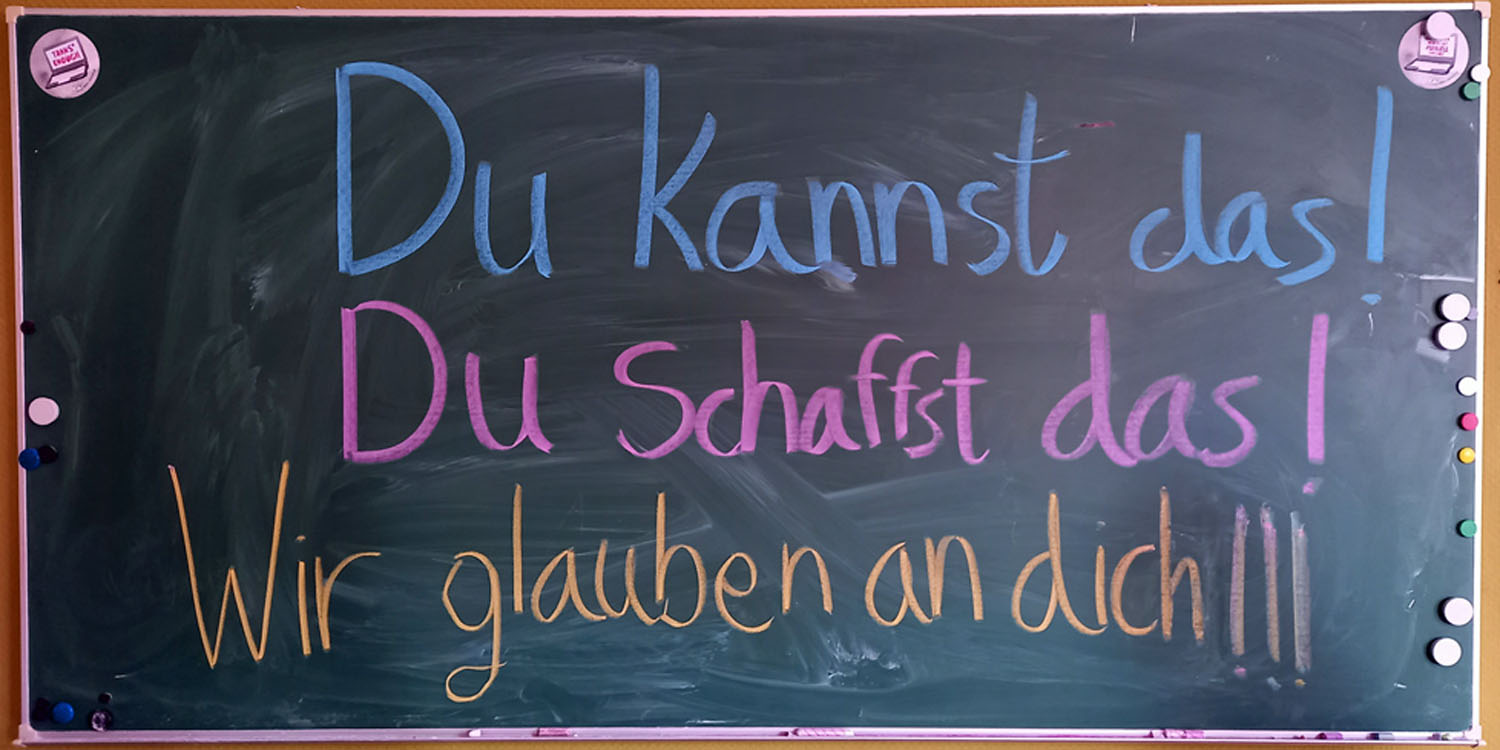 TANNS' ENOUGH
Du kannst das!
Du Schaffst das!
Wir glauben an dich!!!